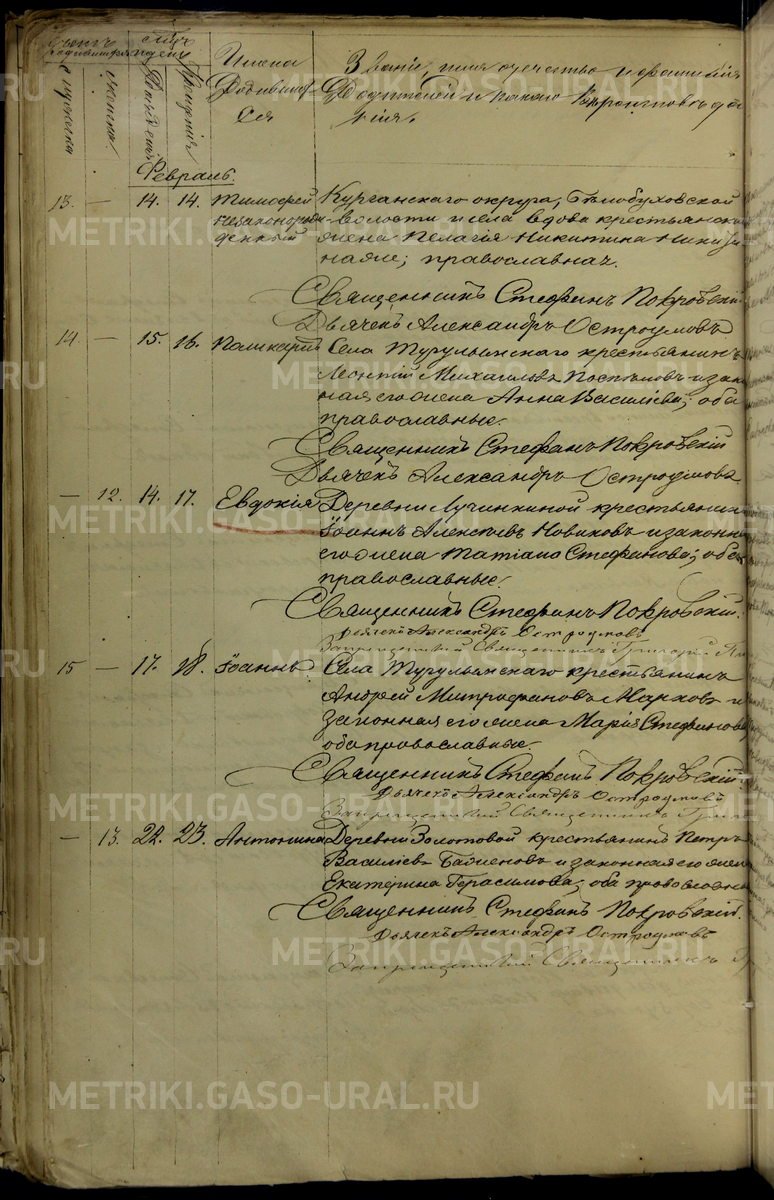 Счетъ родившихся
Мѣсяцъ и день
Имена
Родивших
ся
Званіе, имя отчество и фамилія
Родителей и какого вѣроисповѣда
нія.
Мужеска
Женска
Рожденія
Крещенія
Февраль.
13. — 14. 14. Тимофей Курганскаго округа, Бѣлобуховской
незаконорож волости и села вдова крестьянская
денный жена Пелагія Никитина
православная.
Священникъ Стефанъ Покровскій
Дьячекъ Александръ Остроумовъ
14 — 15. 16. Села Тугулымскаго крестьянинъ
Леонтій Михаиловъ Поспѣловъ и закон
ная его жена Анна Васильева; оба
православные.
Священникъ Стефанъ Покровскій
Дьячекъ Александръ Остроумовъ
— 12. 14. 17. Евдокія Деревни Лучинкиной крестьянинъ
Іоаннъ Алексѣевъ Новиковъ и законная
его жена Татіана Стефанова; оба
православные.
Священникъ Стефанъ Покровскій.
Дьячекъ Александръ Остроумовъ
Запрещенный Священникъ Григорій
15 — 17. 18. Іоаннъ Села Тугулымскаго крестьянинъ
Андрей Митрофановъ Марковъ и
законная его жена Марія Стефанова
оба православные.
Священникъ Стефанъ Покровскій.
Дьячекъ Александръ Остроумовъ
Запрещенный Священникъ
— 13. 22. 23. Антонина Деревни Золотовой крестьянинъ Петръ
Васильевъ Баженовъ и законная его жена
Екатерина Герасимова, оба православные
Священникъ Стефанъ Покровскій.
Дьячекъ Александръ Остроумовъ
Запрещенный Священникъ
METRIKI.GASO-URAL.RU